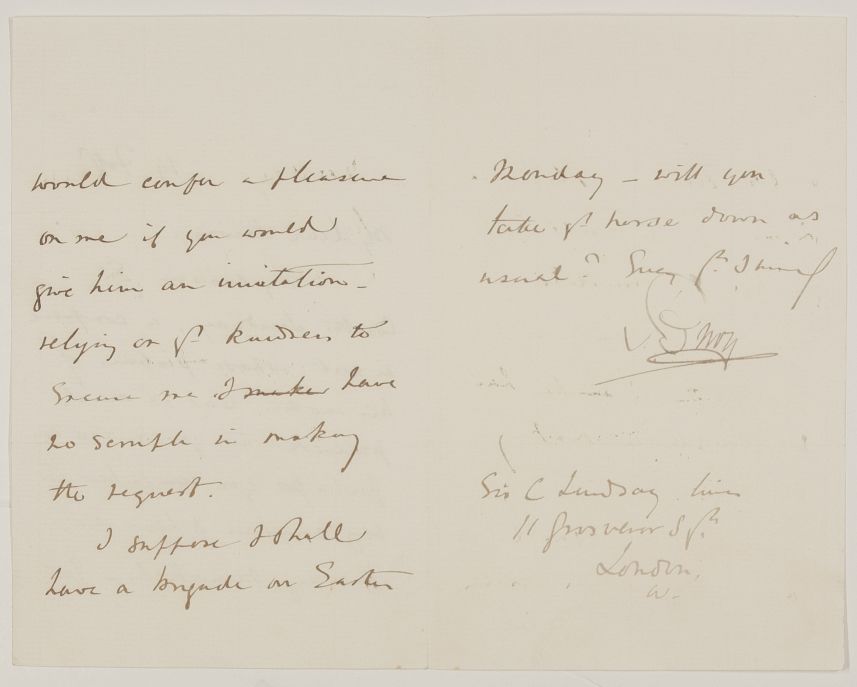 would confer a pleasure
on me if you would
give him an invitation –
relying on yr kindness to
excuse me I make have
no scruple in making
the request.
I suppose I shall
have a brigade on Easter
Monday – will you
take yr horse down as
usual? Ever yrs
Sir C Lindsay
11 Grosvenor Sqre
London,
W.